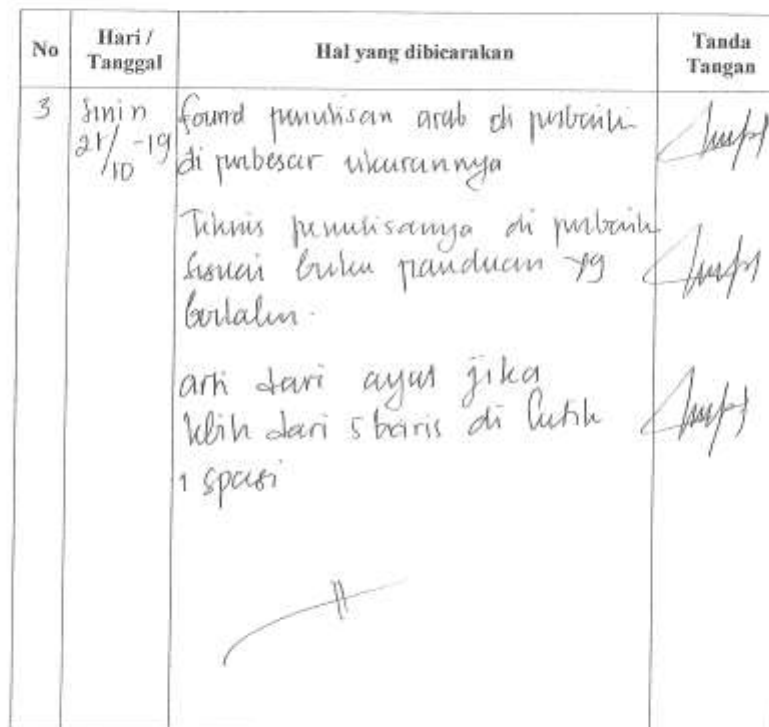 No
Hari / Tanggal
Hal yang dibicarakan
Tanda Tangan
3
Senin
21/10 -19
found penulisan arab di perbaiki
di perbesar ukurannya
Teknis penulisanya di perbaiki
sesuai buku panduan yg
berlaku.
arti dari ayat jika
lebih dari 5 baris di ketik
1 spasi